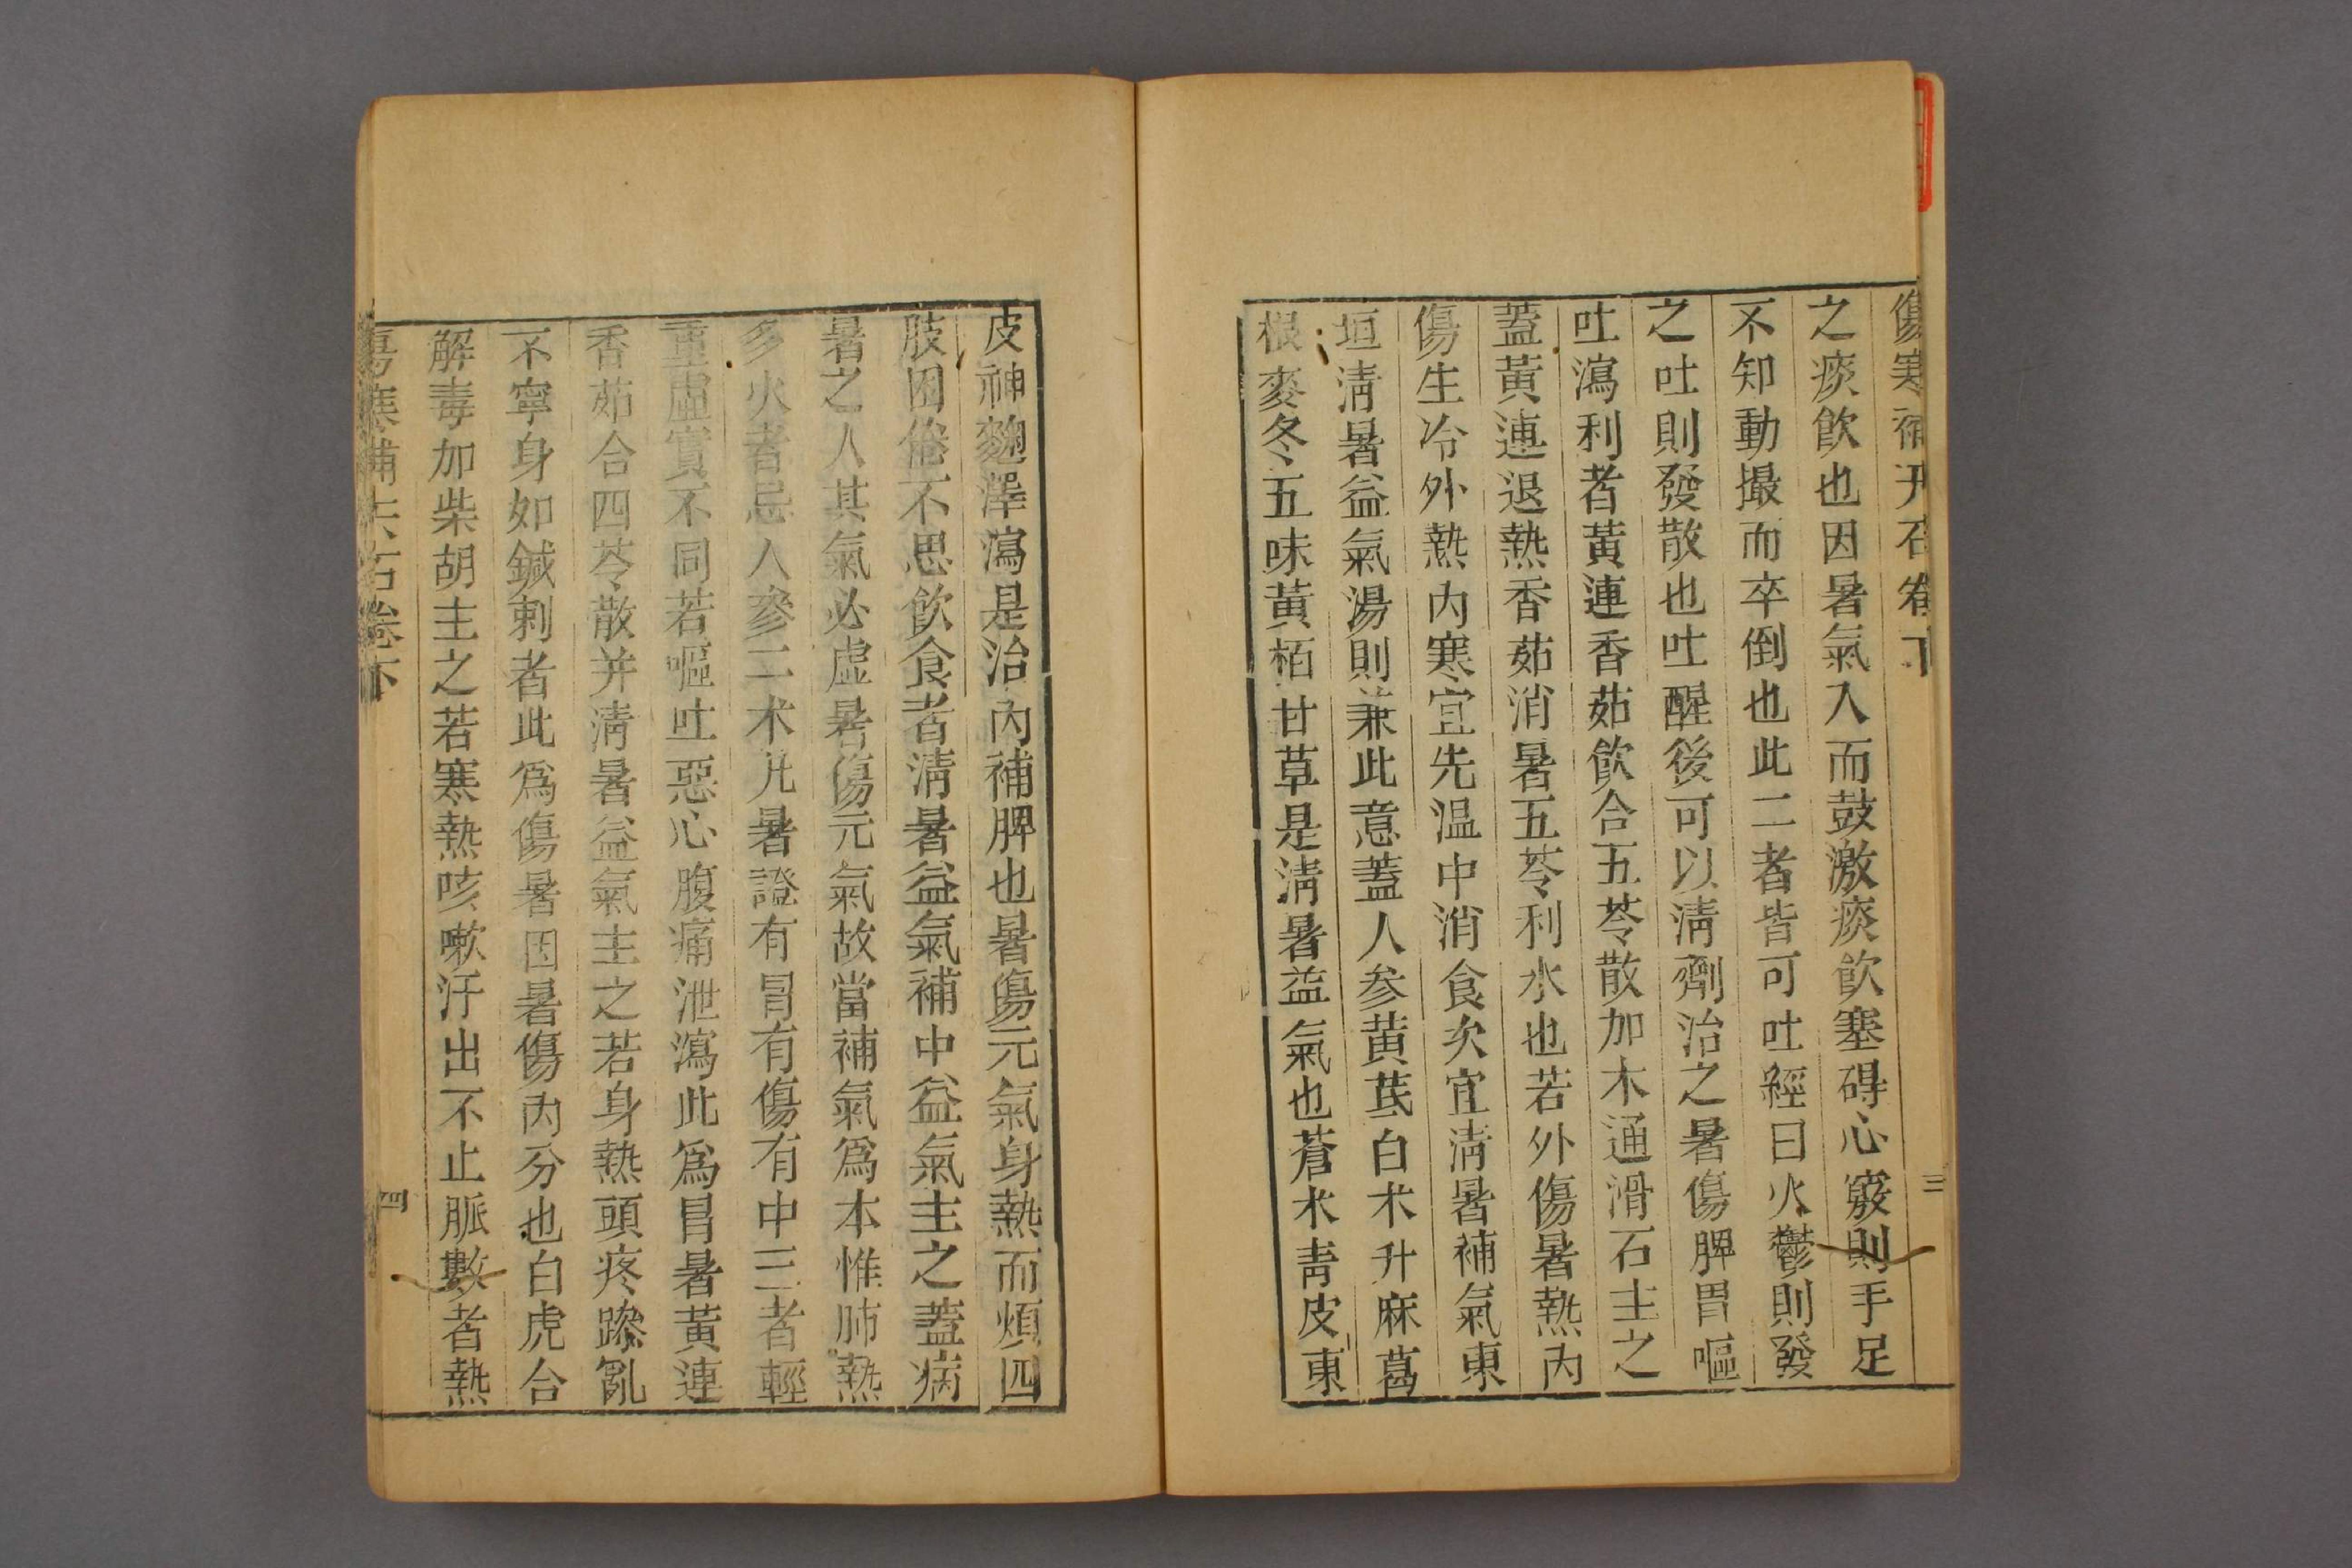 傷寒補天石卷下
三
之痰飲也因暑氣入而鼓激痰飲塞碍心竅則手足
不知動撮而卒倒也此二者皆可吐經曰火鬱則發
之吐則發散也吐醒後可以清劑治之暑傷脾胃嘔
吐瀉利者黃連香茹飲合五苓散加木通滑石主之
蓋黃連退熱香茹消暑五苓利水也若外傷暑熱内
傷生冷外熱内寒宜先温中消食次宜清暑補氣東
垣清暑益氣湯則兼此意蓋人參黃芪白术升麻葛
根麥冬五味黃栢甘草是清暑益氣也蒼术青皮東
皮神麯澤瀉是治内補脾也暑傷元氣身熱而煩四
肢困倦不思飲食者清暑益氣補中益氣主之蓋病
暑之人其氣必虛暑傷元氣故當補氣爲本惟肺熱
多火者忌人參二术凡暑證有冒有傷有中三者輕
重虛實不同若嘔吐惡心腹痛泄瀉此爲冒暑黃連
香茹合四苓散并清暑益氣主之若身熱頭疼躁亂
不寧身如鍼刺者此爲傷暑因暑傷内分也白虎合
解毒加柴胡主之若寒熱咳嗽汗出不止脈數者熱
傷寒補天石卷下
四